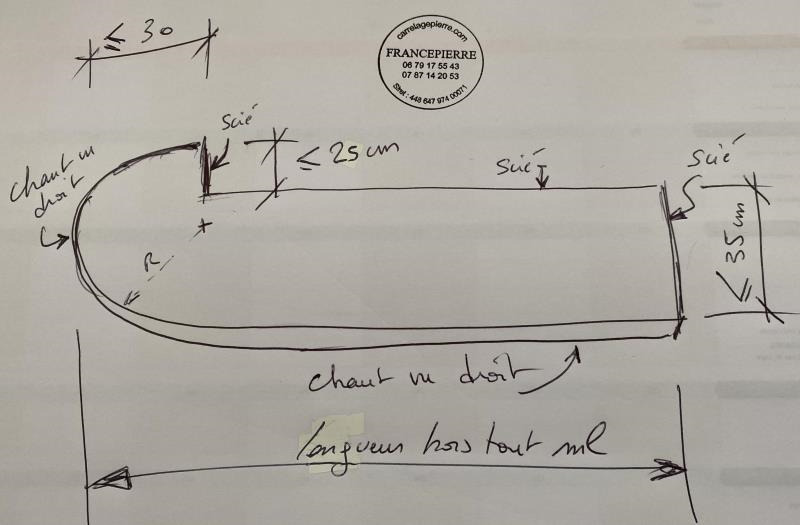 ≤ 30
carrelagepierre.com
FRANCEPIERRE
06 79 17 55 43
07 87 14 20 53
Siret : 448 647 974 00071
scié
≤ 25 cm
scié
scié
chant vu
droit
R
≤ 35 cm
chant vu droit
longueur hors tout ml